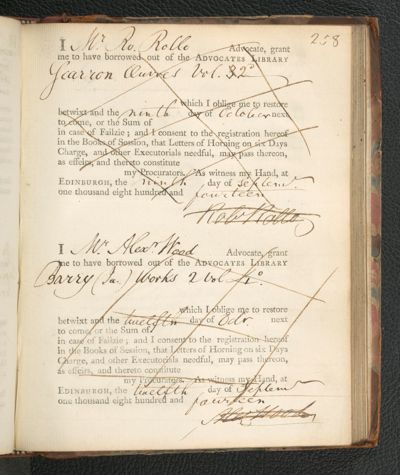 258
I Mr. Ro. Rollo Advocate, grant
me to have borrowed out of the ADVOCATES LIBRARY
Scarron Œuvres Vol. 2°
which I oblige me to restore
betwixt and the ninth day of October next
to come, or the Sum of
in case of Failzie; and I consent to the registration hereof
in the Books of Session, that Letters of Horning on six Days
Charge, and other Executorials needful, may pass thereon,
as effeirs, and thereto constitute
my Procurators. As witness my Hand, at
EDINBURGH, the ninth day of Septemr.
one thousand eight hundred and fourteen
Rob Rollo
I Mr. Alexr. Wood Advocate, grant
me to have borrowed out of the ADVOCATES LIBRARY
Barry (Ja.) Works 2 Vol. 4°.
which I oblige me to restore
betwixt and the twelfth day of Octr. next
to come, or the Sum of
in case of Failzie; and I consent to the registration hereof
in the Books of Session, that Letters of Horning on six Days
Charge, and other Executorials needful, may pass thereon,
as effeirs, and thereto constitute
my Procurators. As witness my Hand, at
EDINBURGH, the twelfth day of Septemr.
one thousand eight hundred and fourteen
Alex Wood